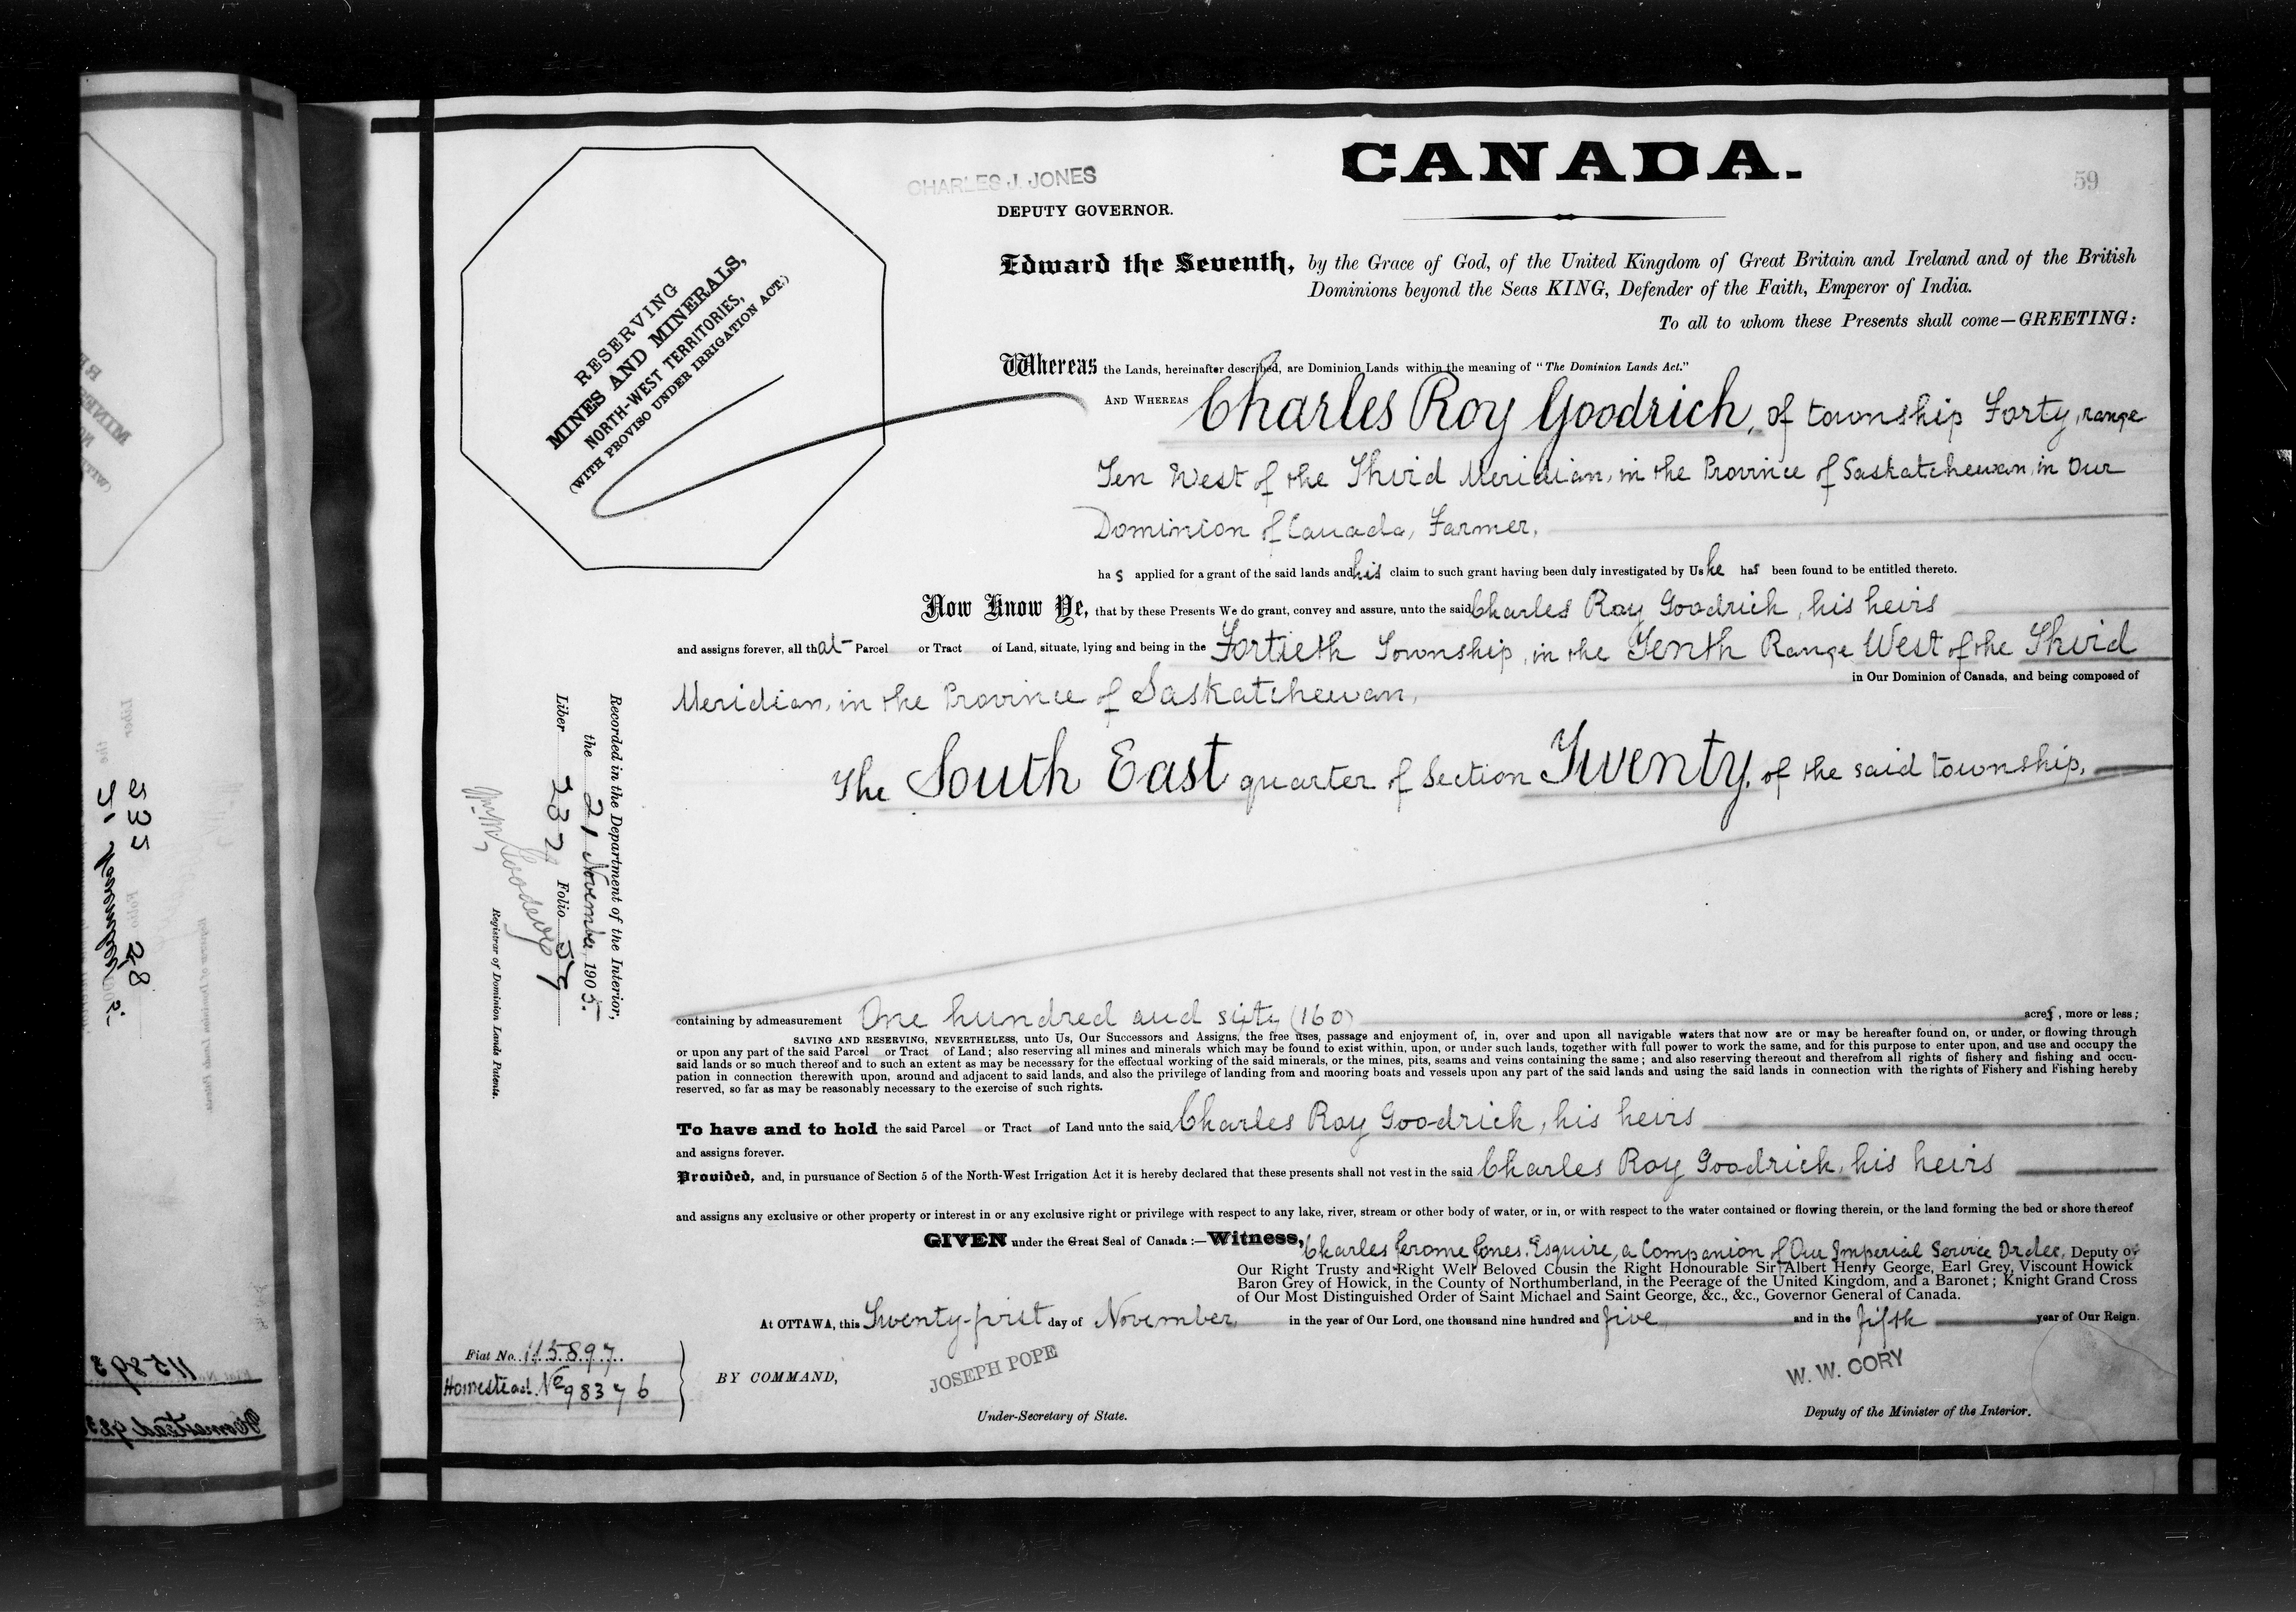 CANADA.
59
CHARLES J. JONES
DEPUTY GOVERNOR.
RESERVING
MINES AND MINERALS,
NORTH-WEST TERRITORIES,
(WITH PROVISO UNDER IRRIGATION ACT.)
Edward the Seventh, by the Grace of God, of the United Kingdom of Great Britain and Ireland and of the British
Dominions beyond the Seas KING, Defender of the Faith, Emperor of India.
To all to whom these Presents shall come—GREETING:
Whereas the Lands, hereinafter described, are Dominion Lands within the meaning of "The Dominion Lands Act."
AND WHEREAS Charles Roy Goodrich, of township Forty, range
Ten West of the Third Meridian, in the Province of Saskatchewan, in Our
Dominion of Canada, Farmer,
ha s applied for a grant of the said lands and his claim to such grant having been duly investigated by Us he has been found to be entitled thereto.
Now Know Ye, that by these Presents We do grant, convey and assure, unto the said Charles Roy Goodrick, his heirs
and assigns forever, all that Parcel or Tract of Land, situate, lying and being in the Fortieth Township, in the Tenth Range West of the Third
Meridian, in the Province of Saskatchewan, in Our Dominion of Canada, and being composed of
The South East quarter of Section Twenty, of the said township,
containing by admeasurement One hundred and sixty (160) acres, more or less;
SAVING AND RESERVING, NEVERTHELESS, unto Us, Our Successors and Assigns, the free uses, passage and enjoyment of, in, over and upon all navigable waters that now are or may be hereafter found on, or under, or flowing through
or upon any part of the said Parcel or Tract of Land; also reserving all mines and minerals which may be found to exist within, upon, or under such lands, together with full power to work the same, and for this purpose to enter upon, and use and occupy the
said lands or so much thereof and to such an extent as may be necessary for the effectual working of the said minerals, or the mines, pits, seams and veins containing the same; and also reserving thereout and therefrom all rights of fishery and fishing and occu-
pation in connection therewith upon, around and adjacent to said lands, and also the privilege of landing from and mooring boats and vessels upon any part of the said lands and using the said lands in connection with the rights of Fishery and Fishing hereby
reserved, so far as may be reasonably necessary to the exercise of such rights.
To have and to hold the said Parcel or Tract of Land unto the said Charles Roy Goodrick, his heirs
and assigns forever.
Provided, and, in pursuance of Section 5 of the North-West Irrigation Act it is hereby declared that these presents shall not vest in the said Charles Roy Goodrick, his heirs
and assigns any exclusive or other property or interest in or any exclusive right or privilege with respect to any lake, river, stream or other body of water, or in, or with respect to the water contained or flowing therein, or the land forming the bed or shore thereof
GIVEN under the Great Seal of Canada :—Witness, Charles Jerome Jones, Esquire, a Companion of Our Imperial Service Order, Deputy of
Our Right Trusty and Right Well Beloved Cousin the Right Honourable Sir Albert Henry George, Earl Grey, Viscount Howick
Baron Grey of Howick, in the County of Northumberland, in the Peerage of the United Kingdom, and a Baronet; Knight Grand Cross
of Our Most Distinguished Order of Saint Michael and Saint George, &c., &c., Governor General of Canada.
At OTTAWA, this Twenty-first day of November, in the year of Our Lord, one thousand nine hundred and five and in the fifth year of Our Reign.
Fiat No. 115897.
Homestead No 98376
BY COMMAND,
JOSEPH POPE
Under-Secretary of State.
W. W. CORY
Deputy of the Minister of the Interior.
Recorded in the Department of the Interior,
the 21 November, 1905.
Liber 237 Folio 59
Registrar of Dominion Lands Patents.